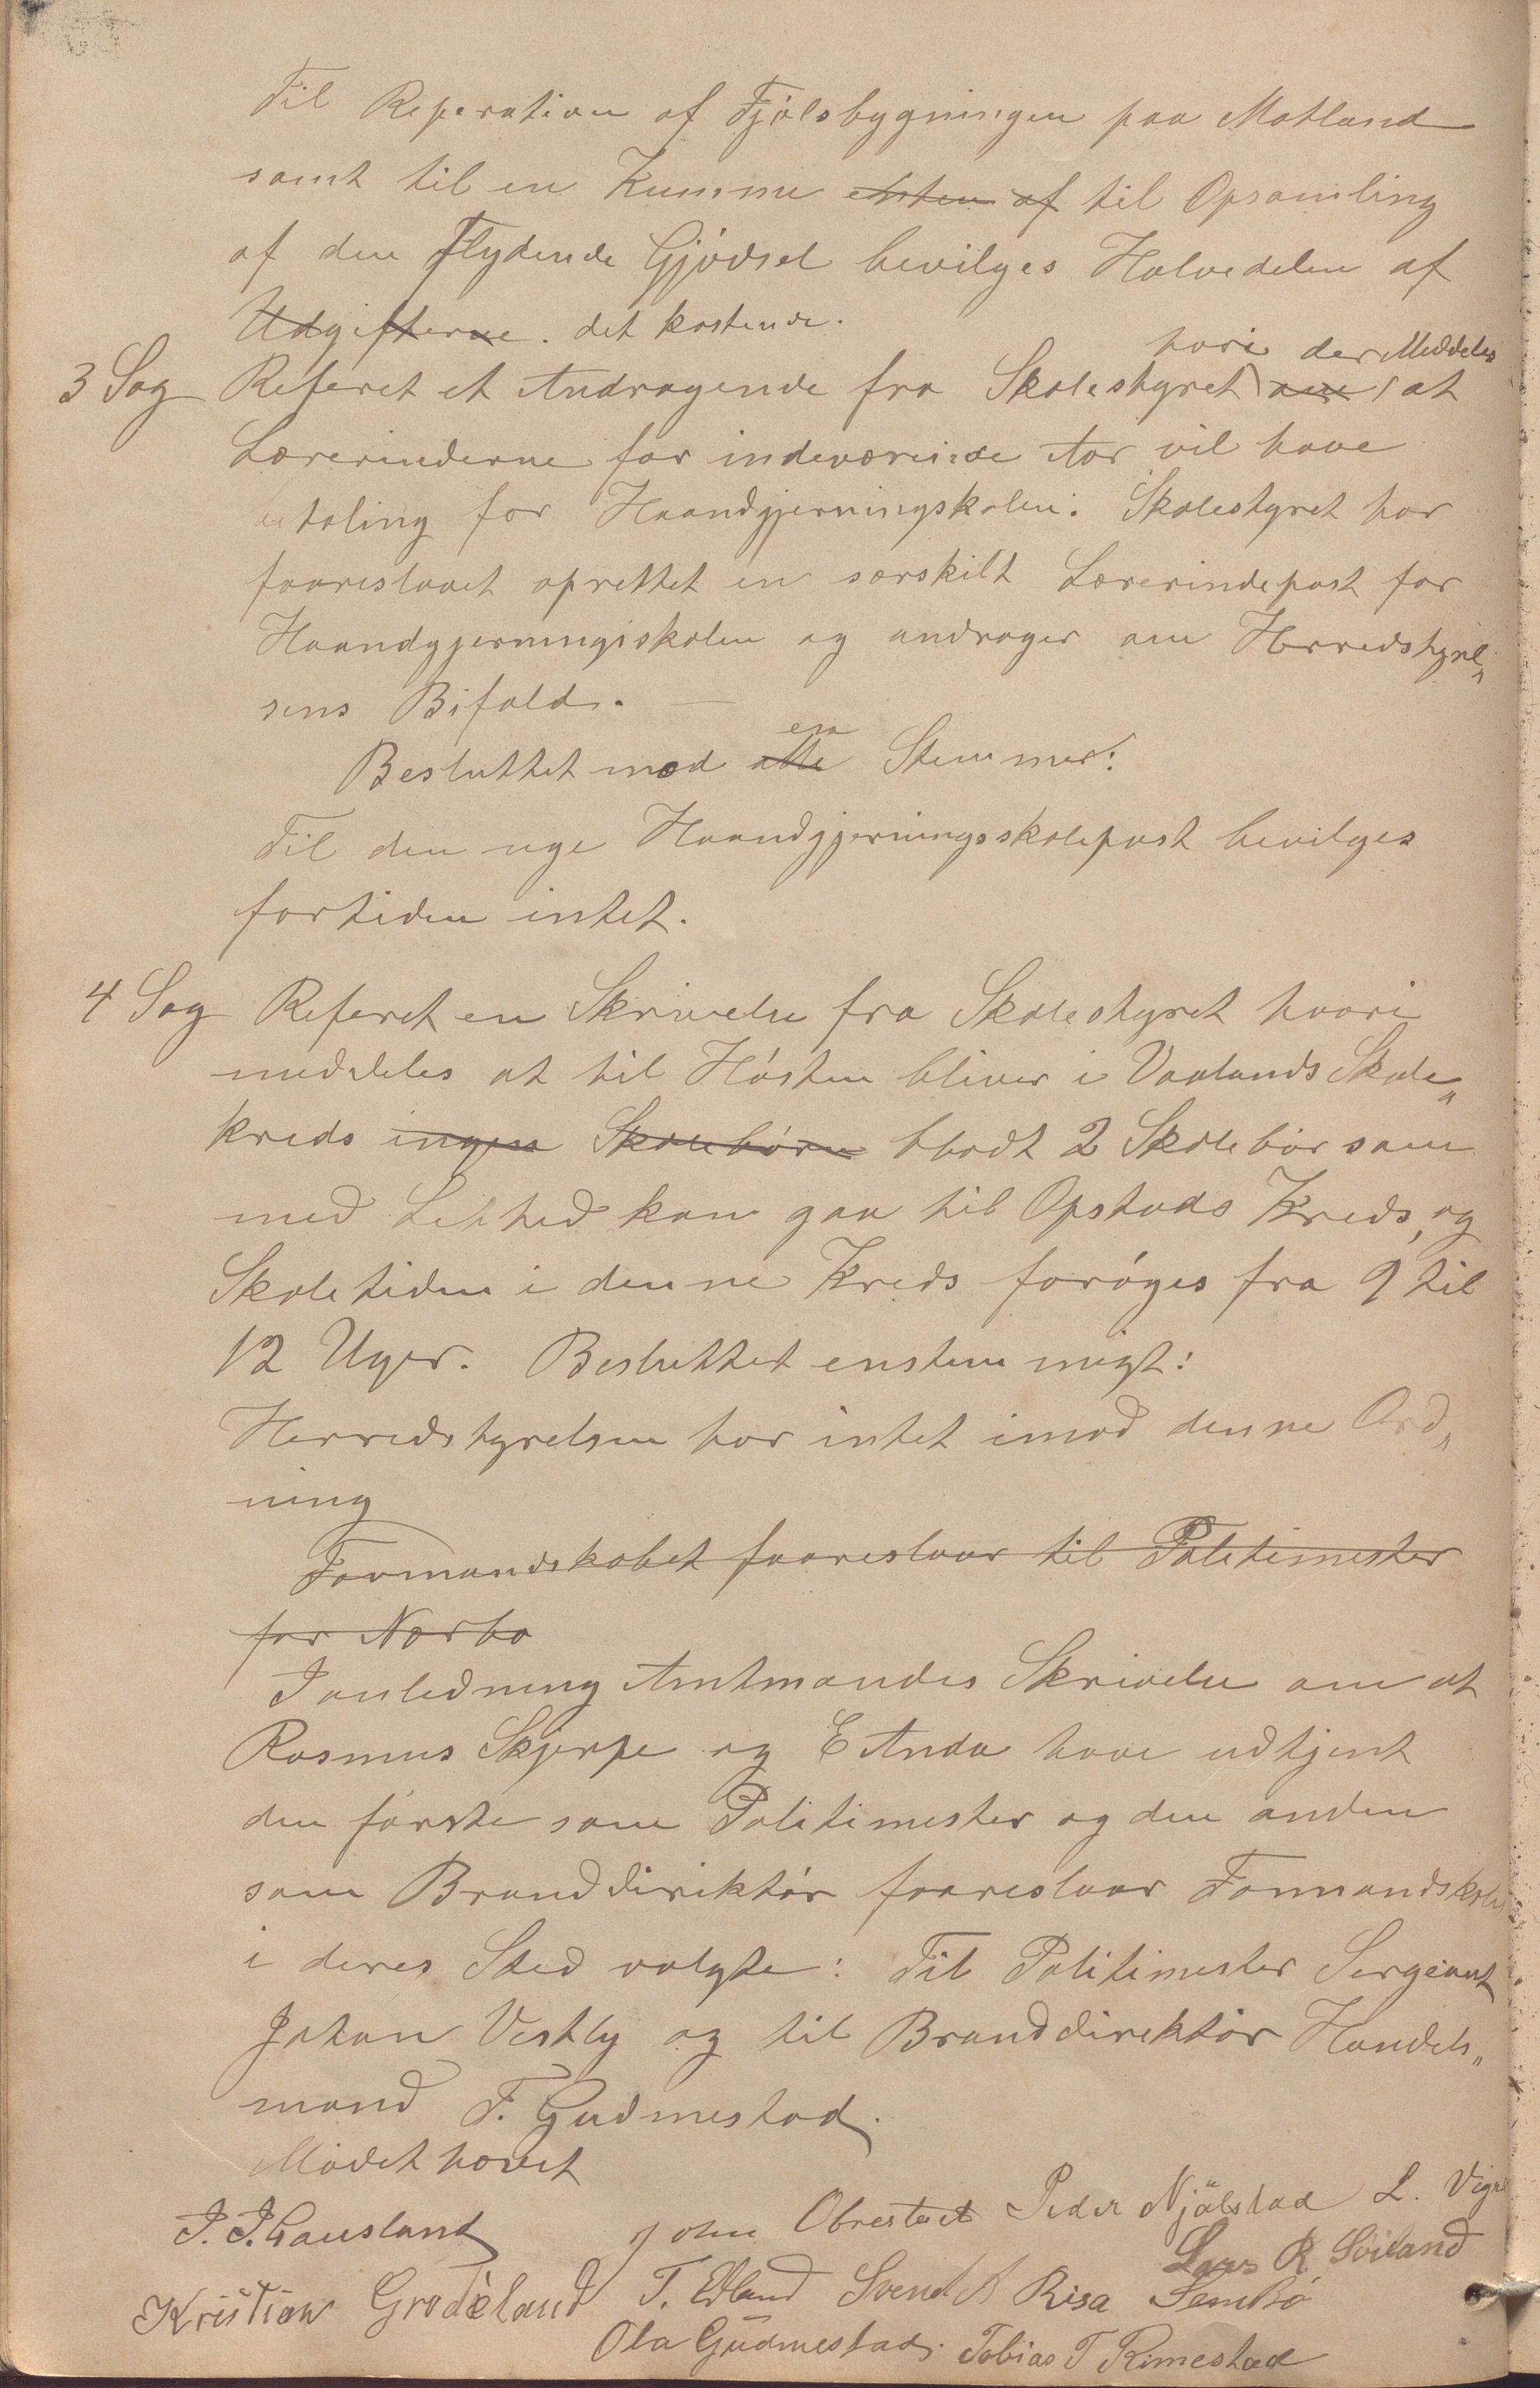 Til Reperation af Fjøsbygningen paa Motland
samt til en Kumme af til Opsamling
af den Flydende Gjødsel bevilges Halvedelen af
Udgifterne. det kostende.
hvori der Meddeles
3 Sag Referet et Andragende fra Skolestyret om at
Lærerinderne for indeværende Aar vil have
taling for Haandgjerningskolen. Skolestyret har
foareslaaet oprettet en særskilt Lærerindepost for
Haandgjerningiskolen og androger om Herredstyrel„
sens Bifald. —
en
Besluttet med atte Stemmer:
Til den nye Haandgjerningsskolepost bevilges
fortiden intet.
4 Sag Referet en Skrivelse fra Skolestyret hvori
meddeles at til Høsten bliver i Vaulands Skole„
kreds ingen Skolebørn blodt 2 Skolebør som
med Lethed kan gaa til Opstads Kreds, og
Skoletiden i denne Kreds forøges fra 9 til
12 Uger. Besluttet enstemmigt:
Herredstyrelsen har intet imod denne Ord„
ning
Formandskabet foareslaar til Politimester
for Nærbo
I anledning Amtmandes Skrivelse om at
Rasmus Skjerpe og E Anda have udtjent
den første som Politimester og den anden
som Branddirektør foareslaar Formandskab
i deres Sted valgte: Til Politimester Sergeant
Johan Vestly og til Branddirektør Handels„
mand F. Gudmestad.
Mødet hævet
J. J. Gausland John Obrestad Peder Njälstad L. Vigre
Lars R. Söiland
Kristian Grødeland T. Edland Svend A Risa Sembø
Ola Gudmestad. Tobias T Rimestad